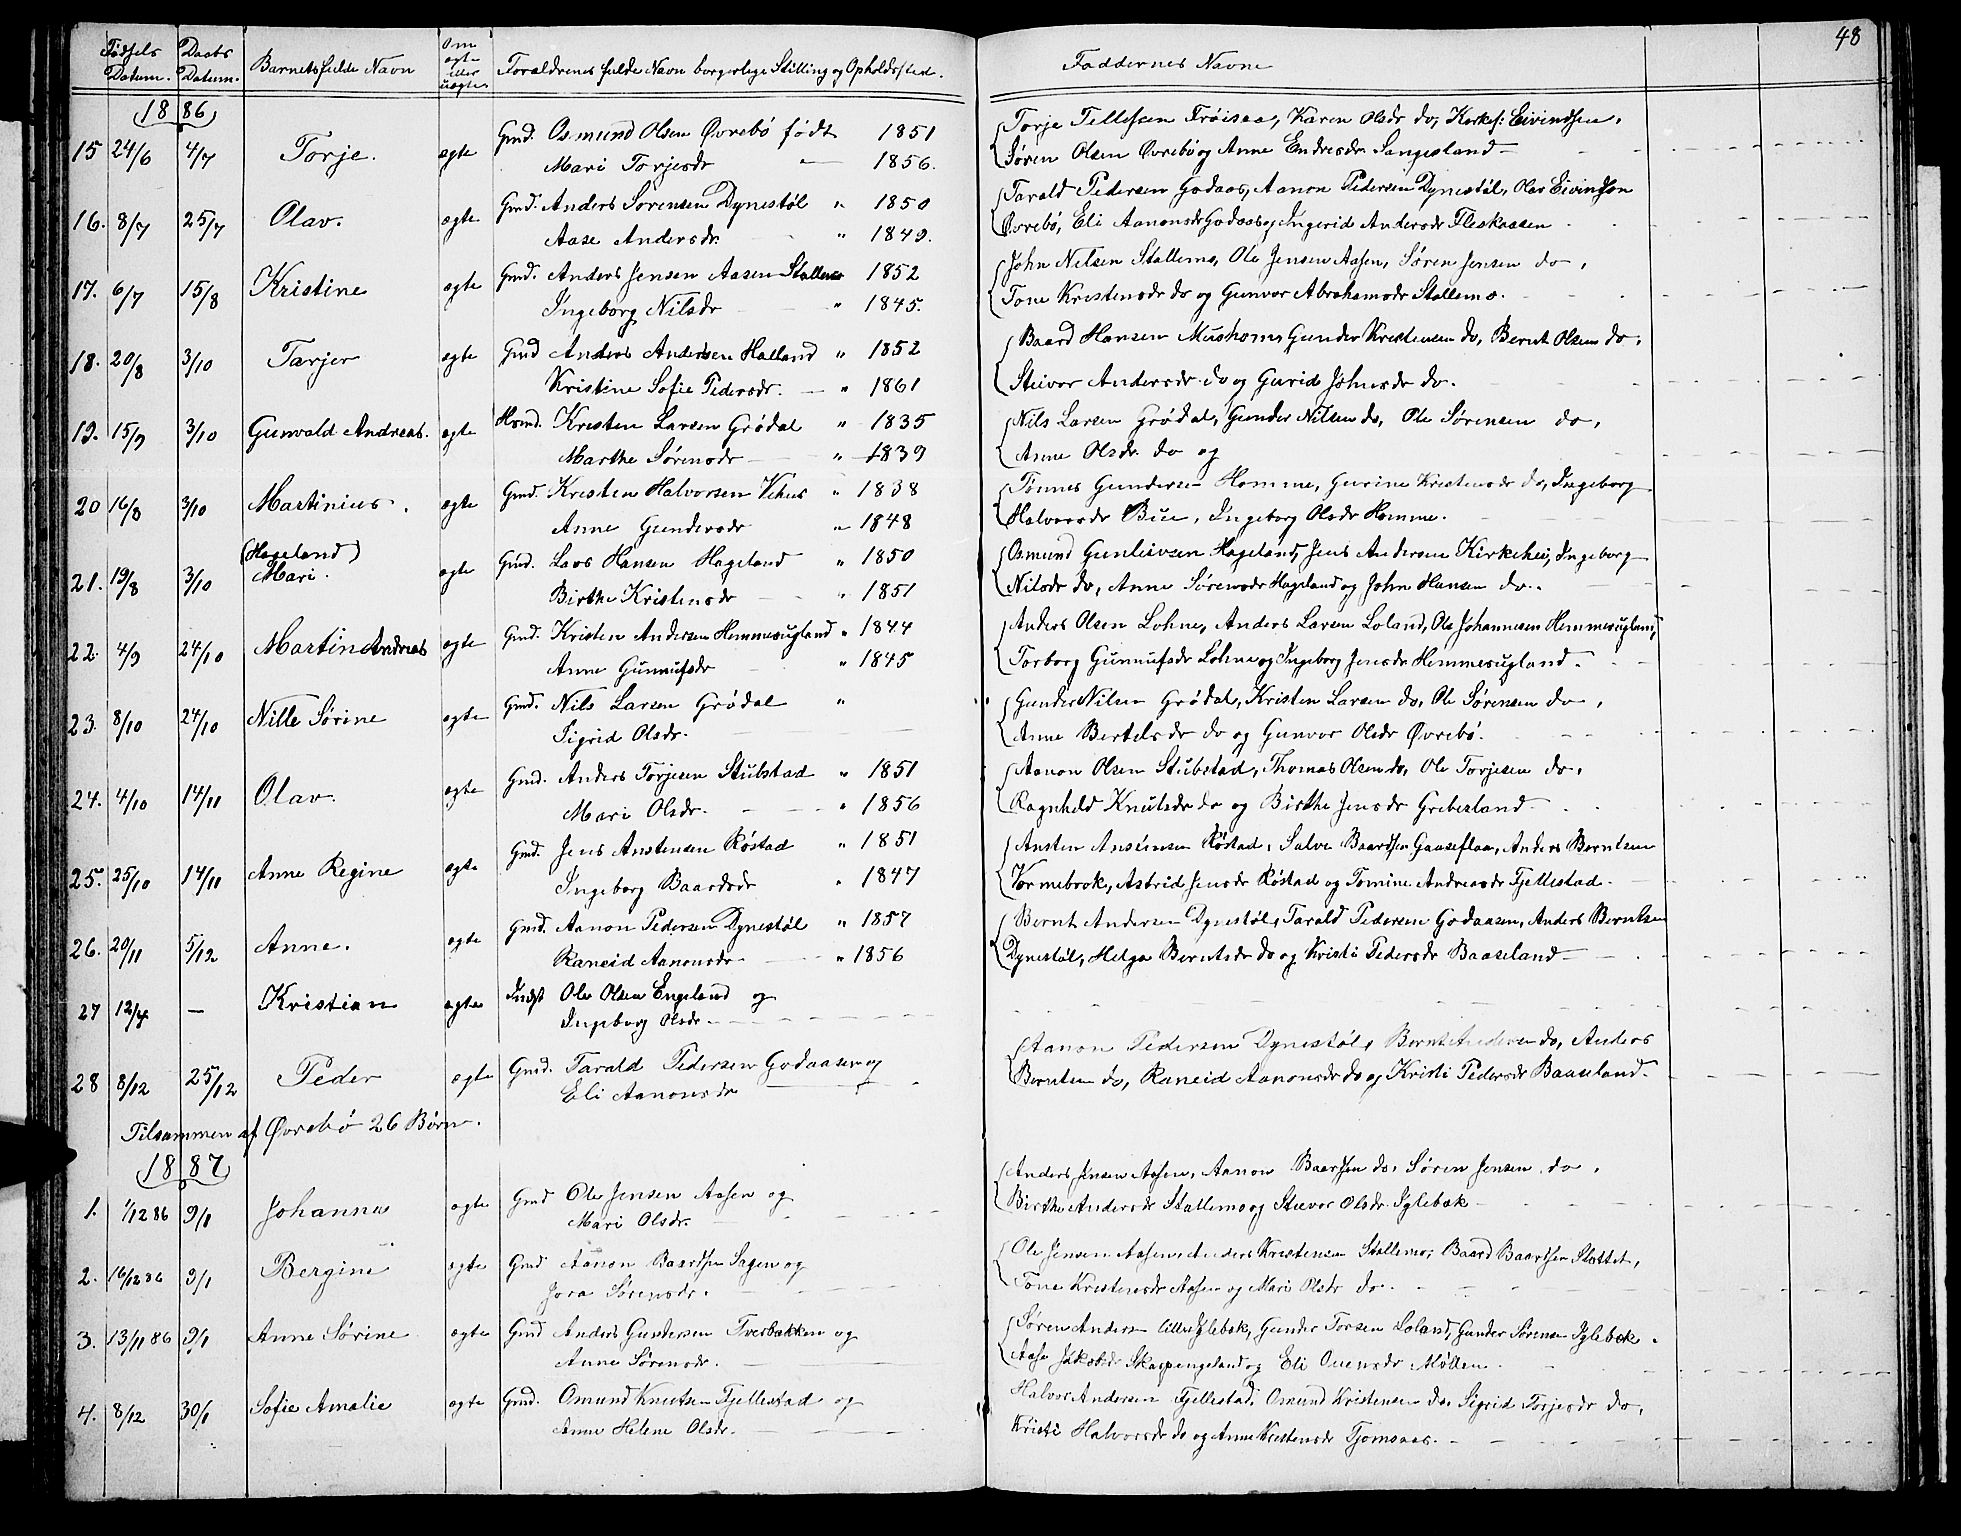 48
Fødsels Datum. Daabs Datum. Barnets fulde Navn Om ægte eller uægte Forældrenes fulde Navn borgerlige Stilling og Opholdssted. Faddernes Navne
1886
15 24/6 4/7 Torje. ægte Gmd. Osmund Olsen Øvrebø født 1851 Torje Tellefsen Frøisaa, Karen Olsdr do, Kirkes: Eivindsen,
Mari Torjesdr " 1856. Søren Olsen Øvrebø og Anne Endresdr Sangesland
16. 8/7 25/7 Olav. ægte Gmd. Anders Sørensen Dynestøl " 1850 Tarald Pedersen Godaas, Aanon Pedersen Dynestøl, Olav Eivindsen
Aase Andersdr. " 1849. Øvrebø, Eli Aanonsdr Godaas og Ingerid Andersdr Fleskaasen
17. 6/7 15/8 Kristine ægte Gmd. Anders Jensen Aasen Stallemo 1852 John Nilsen Stallemo, Ole Jensen Aasen, Søren Jensen do,
Ingeborg Nilsdr " 1845. Tone Kristensdr do og Gunvor Abrahamsdr Stallemo.
18. 20/8 3/10 Tarjer ægte Gmd Anders Andersen Halland " 1852 Baard Hansen Mushom, Gunder Kristensen do, Bernt Olsen do,
Kristine Sofie Pedersdr. " 1861 Stævor Andersdr do og Gurid Johnsdr do.
19. 15/9 3/10 Gunvald Andreas. ægte Hsmd. Kristen Larsen Grødal " 1835 Nils Larsen Grødal, Gunder Nilsen do, Ole Sørensen do,
Marthe Sørensdr " 1839 Anne Olsdr. do og
20 16/8 3/10 Martinius. ægte Gmd. Kristen Halvorsen Vehus " 1838 Tønnes Gundersen Homme, Gurine Kristensdr do, Ingeborg
Anne Gundersdr " 1848 Halvorsdr Bue, Ingeborg Olsdr Homme.
21. 19/8 3/10 (Hageland) Mari. ægte Gmd. Lars Hansen Hageland " 1850 Osmund Gunleivsen Hageland, Jens Andersen Kirkehei, Ingeborg
Birthe Kristensdr " 1851 Nilsdr do, Anne Sørensdr Hageland og John Hansen do.
22. 4/9 24/10 Martin Andreas ægte Gmd. Kristen Andersen Hemmesugland " 1844 Anders Olsen Lohne, Anders Larsen Loland, Ole Johannesen Hemmesugland,
Anne Gunnufsdr " 1845 Torborg Gunnufsdr Lohne og Ingeborg Jensdr Hemmesugland.
23. 8/10 24/10 Nille Sørine ægte Gmd. Nils Larsen Grødal " Gunder Nilsen Grødal, Kristen Larsen do, Ole Sørensen do,
Sigrid Olsdr. Anne Bertelsdr do og Gunvor Olsdr Øvrebø.
24. 4/10 14/11 Olav. ægte Gmd. Anders Torjesen Stubstad " 1851 Aanon Olsen Stubstad, Thomas Olsen do, Ole Torjesen do,
Mari Olsdr. " 1856 Ragnhild Knutsdr do og Birthe Jensdr Greibesland
25. 25/10 14/11 Anne Regine ægte Gmd. Jens Anstensen Røstad " 1851 Ansten Ansténsen Røstad, Salve Baardsen Gaaseflaa, Anders Berntsen
Ingeborg Baardsdr " 1847 Vormebrok, Astrid Jensdr Røstad og Tomine Andreasdr Fjellestad.
26. 20/11 5/12 Anne. ægte Gmd. Aanon Pedersen Dynestøl " 1857 Bernt Andersen Dynestøl, Tarald Pedersen Godaasen, Anders Berntsen
Raneid Aanonsdr " 1856 Dynestøl, Helga Berntsdr do og Kristi Pedersdr Baaseland
27 12/4 — Kristian ægte Indst Ole Olsen Engeland og
Ingeborg Olsdr.
28 8/12 25/12 Peder ægte Gmd. Tarald Pedersen Godaasen og Aanon Pedersen Dynestøl, Bernt Andersen do, Anders
Eli Aanonsdr Berntsen do, Raneid Aanonsdr do og Kristi Pedersdr Baaseland.
Tilsammen af Øvrebø 26 Børn.
1887
1. 1/12 86 9/1 Johannes ægte Gmd Ole Jensen Aasen og Anders Jensen Aasen, Aanon Baardsen do, Søren Jensen do,
Mari Olsdr. Birthe Andersdr Stallemo og Stævor Olsdr. Iglebæk
2. 16/12 86 9/1 Bergine ægte Gmd Aanon Baardsen Sagen og Ole Jensen Aasen, Anders Kristensen Stallemo, Baard Baardsen Slottet,
Jora Sørensdr. Tone Kristensdr Aasen og Mari Olsdr do.
3. 13/11 86 9/1 Anne Sørine ægte Gmd Anders Gundersen Tverbakken og Søren Anders Lille Iglebæk, Gunder Torsen Loland, Gunder Sørensen Iglebæk.
Anne Sørensdr. Aase Jakobsdr Skarpengeland og Eli Ouensdr Mollen.
4. 8/12 30/1 Sofie Amalie ægte Gmd. Osmund Knutsen Fjellestad og Halvor Andersen Fjellestad, Osmund Kristensen do, Sigrid Torjesdr do,
Anne Helene Olsdr. Kristi Halvorsdr do og Anne Kristensdr Tjomsaas.